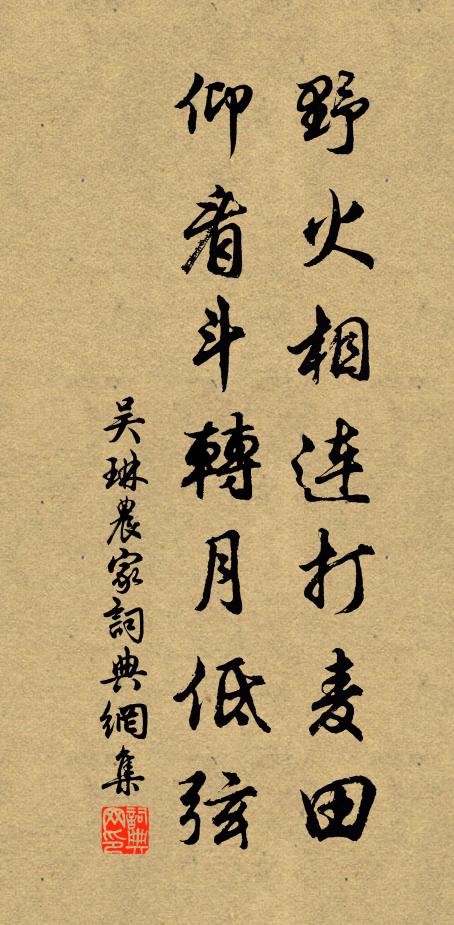 野火相连打麦田
仰看斗轉月低弦
吴琳農家詞典網集
詞典网印